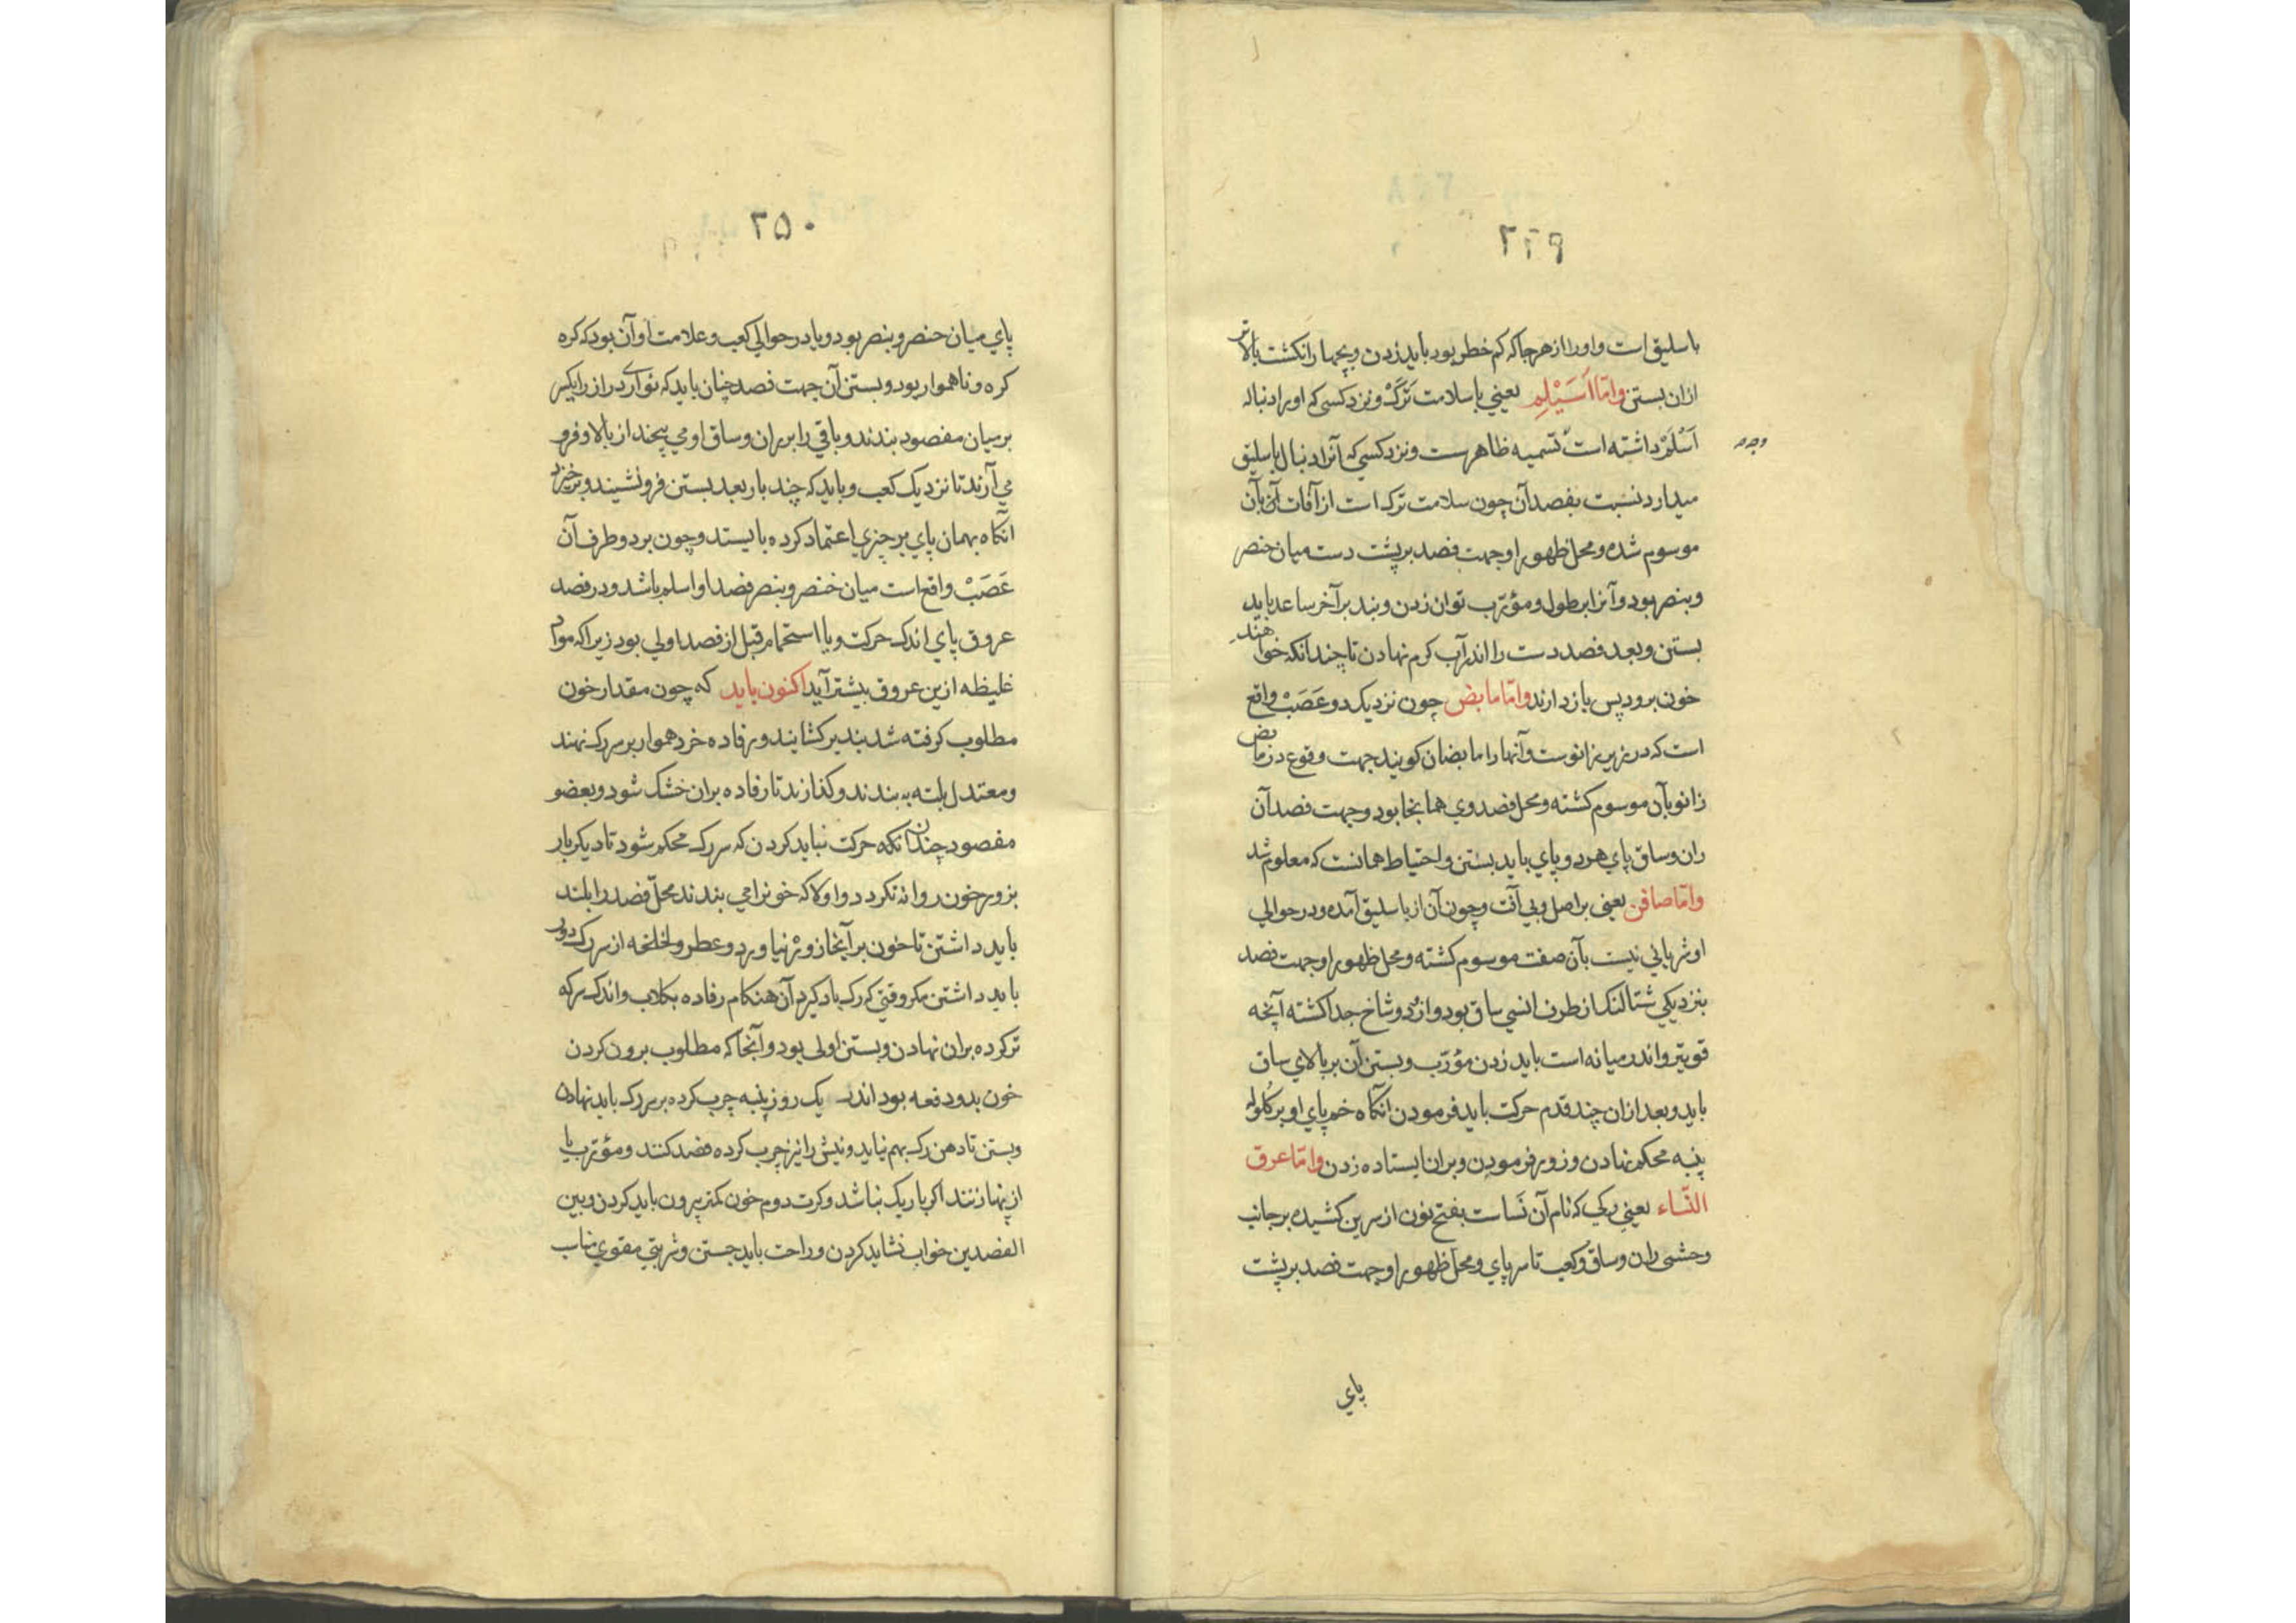 ۲۴۹
باسلیق است و او را از هر جا که کم خطر بود باید زدن و پنجها رانکشت بالاتر
ازان بستن و امّا اُسَیْلِم یعنی با سلامت تَرَک و نزد کسی که او را دنباله
اَسْلَمْ داشته است تسمیه ظاهرست و نزد کسی که آنرا دنبال باسلیق
وجه
میدارد نسبت بفصد آن چون سلامت ترک است از آفات آن بآن
موسوم شده و محل ظهور او جهت فصد بر پشت دست میان خنصر
و بنصر بود و آنرا بطول و مؤرّب توان زدن و بند بر آخر ساعد باید
بستن و بعد فصد دست را اندر آب کرم نهادن تا چندانکه خواهند
خون برود پس بازدارند و امّا مابض چون نزدیک دو عَصَبْ واقع
است که در زیر زانوست و آنها را مابضان کویند جهت وقوع در مابض
زانو بآن موسوم کشته و محل فصد وی همانجا بود و جهت فصد آن
ران و ساق پای هر دو پای باید بستن و احتیاط همانست که معلوم شد
و امّا صافن یعنی بر اصل و بی آفت و چون آن از باسلیق آمده و در حوالی
او شریانی نیست بآن صفت موسوم کشته و محل ظهور او جهت فصد
بنزدیکی شتالنک از طرف انسی ساق بود و از دو شاخ جدا کشته آنچه
قویتر و اندر میانه است باید زدن مؤرّب و بستن آن بر بالای ساق
باید و بعد ازان چند قدم حرکت باید فرمودن انکاه خم پای او بر کُلوله
پنبه محکم نهادن و زور فرمودن و بران ایستاده زدن و امّا عرق
النّساء یعنی رکی که نام آن نَساست بفتح نون از سرین کشیده بر جانب
وحشی ران و ساق و کعب تا سر پای و محل ظهور او جهت فصد بر پشت
پای
۲۵۰
پای میان خنصر و بنصر بود و یا در حوالی کعب و علامت او آن بود که کره
کره و ناهموار بود و بستن آن جهت فصد چنان باید که نواری دراز را یکسر
بر میان مفصود بندند و باقی را بر ران و ساق او می پیچند از بالا و فرو
می آرند تا نزدیک کعب و باید که چند بار بعد بستن فرو نشیند و برخیزد
انکاه بهمان پای بر چیزی اعتماد کرده بایستد و چون بر دو طرف آن
عَصَبْ واقع است میان خنصر و بنصر فصد او اسلم باشد و در فصد
عروق پای اندک حرکت و یا استحمام قبل از فصد اولی بود زیرا که مواد
غلیظه ازین عروق بیشتر آید اکنون باید که چون مقدار خون
مطلوب کرفته شد بند برکشایند و رفاده خرد هموار بر سر رک نهند
و معتدل بلته به بندند و کذارند تا رفاده بران خشک شود و بعضو
مفصود چندانکه حرکت نباید کردن که سر رک محکم شود تا دیکر بار
بزور خون روانه نکردد و اولا که خونرا می بندند محلّ فصد را بلند
باید داشتن تا خون بر آنجا زور نیاورد و عطر و لخلخه از سر رک دور
باید داشتن مکر وقتی که رک باد کیرد آن هنکام رفاده بکلاب و اندک سرکه
تر کرده بران نهادن و بستن اولی بود و آنجا که مطلوب برون کردن
خون بدو دفعه بود اندر یک روز پنبه چرب کرده بر سر رک باید نهادن
و بستن تا دهن رک بهم نیاید و نیش را نیز چرب کرده فصد کنند و مؤرّب یا
از پهنا زنند اکر باریک نباشد و کرت دوم خون کمتر بیرون باید کردن و بین
الفصدین خواب نشاید کردن و راحت باید جستن و شربتی مقوی مناسب